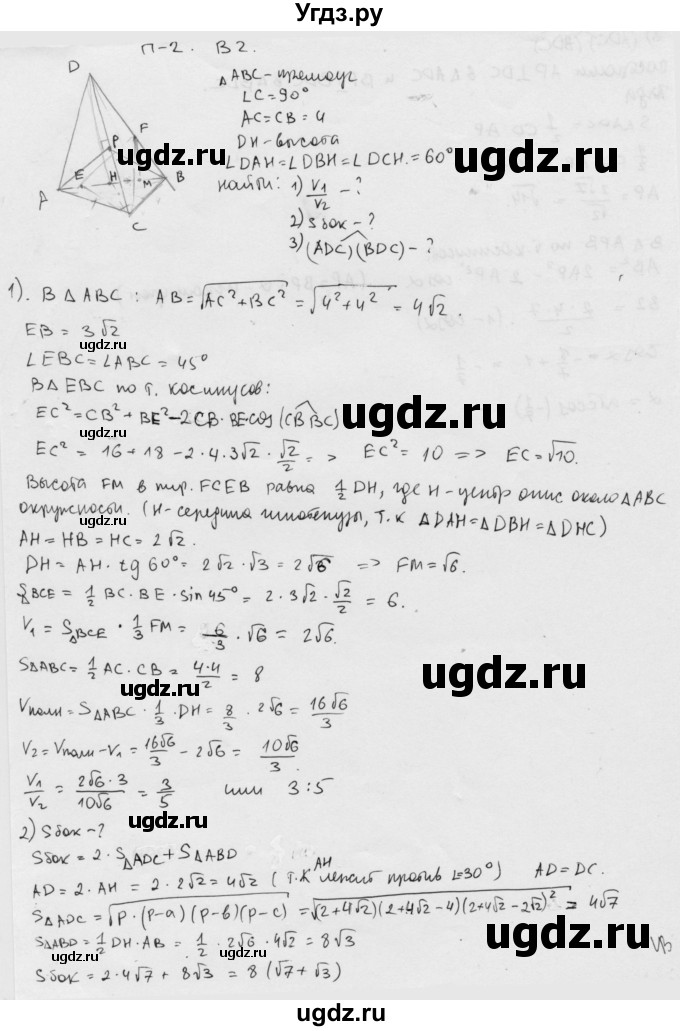 Угдз.ру
П-2. В2.
△ABC - прямоуг
∠C = 90°
AC = CB = 4
DH - высота
∠DAH = ∠DBH = ∠DCH. = 60°
найти: 1) V₁/V₂ - ?
2) Sбок - ?
3) (ADC)(BDC) - ?
D
F
P
A E H M B
C
1). В △ABC : AB = √(AC² + BC²) = √(4² + 4²) = 4√2.
EB = 3√2
∠EBC = ∠ABC = 45°
В △EBC по т. косинусов:
EC² = CB² + BE² - 2CB · BE cos (CB BC)
EC² = 16 + 18 - 2 · 4 · 3√2 · √2/2 => EC² = 10 => EC = √10.
Высота FM в пир. FCEB равна 1/2 DH, где H - центр опис около △ABC
окружности. (H - середина гипотенузы, т.к △DAH = △DBH = △DHC)
AH = HB = HC = 2√2.
DH = AH · tg 60° = 2√2 · √3 = 2√6 => FM = √6.
S△BCE = 1/2 BC · BE · sin 45° = 2 · 3√2 · √2/2 = 6.
V₁ = S△BCE · 1/3 FM = 6/3 · √6 = 2√6.
S△ABC = 1/2 AC · CB = 4·4/2 = 8
Vполн = S△ABC · 1/3 · DH = 8/3 · 2√6 = 16√6/3
V₂ = Vполн - V₁ = 16√6/3 - 2√6 = 10√6/3.
V₁/V₂ = 2√6 · 3/10√6 = 3/5 или 3 : 5
2) Sбок - ?
Sбок = 2 · S△ADC + S△ABD
AD = 2 · AH = 2 · 2√2 = 4√2 (т.к AH лежит против ∠=30°) AD = DC.
S△ADC = √(p · (p-a)(p-b)(p-c)) = √((2+4√2)(2+4√2-4)(2+4√2-2√2)²) = 4√7
S△ABD = 1/2 DH · AB = 1/2 · 2√6 · 4√2 = 8√3
Sбок = 2 · 4√7 + 8√3 = 8(√7 + √3)
ugdz.ru
ugdz.ru
ugdz.ru
ugdz.ru
ugdz.ru
ugdz.ru
ugdz.ru
ugdz.ru
ugdz.ru
ugdz.ru
ugdz.ru
ugdz.ru
ugdz.ru